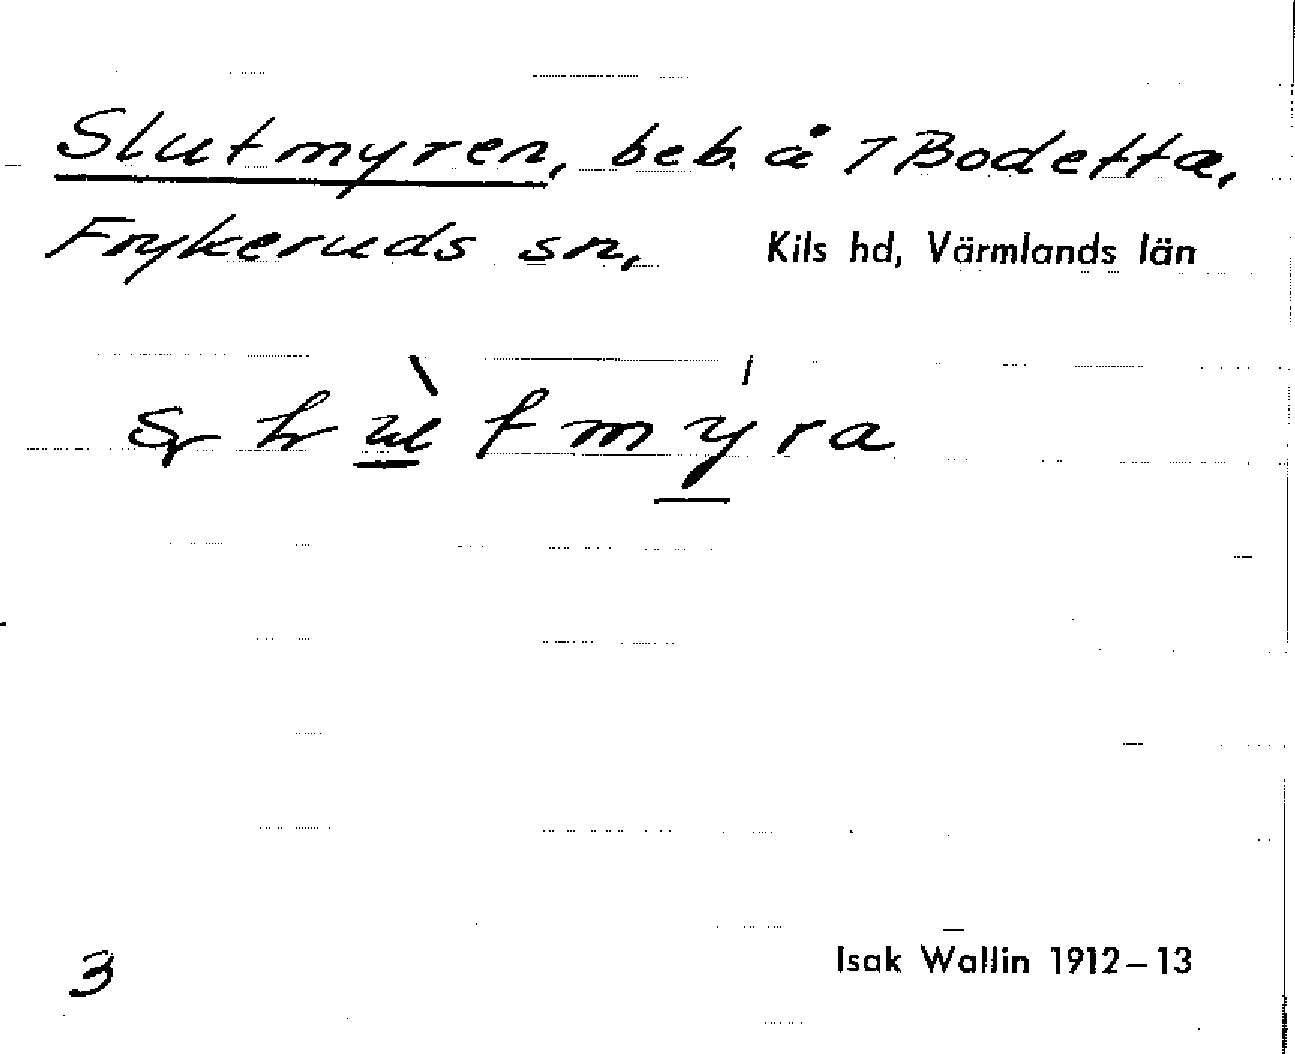 Slutmyren, beb. å 1 Bodetta,
Frykeruds sn, Kils hd, Värmlands län
3
Isak Wallin 1912–13